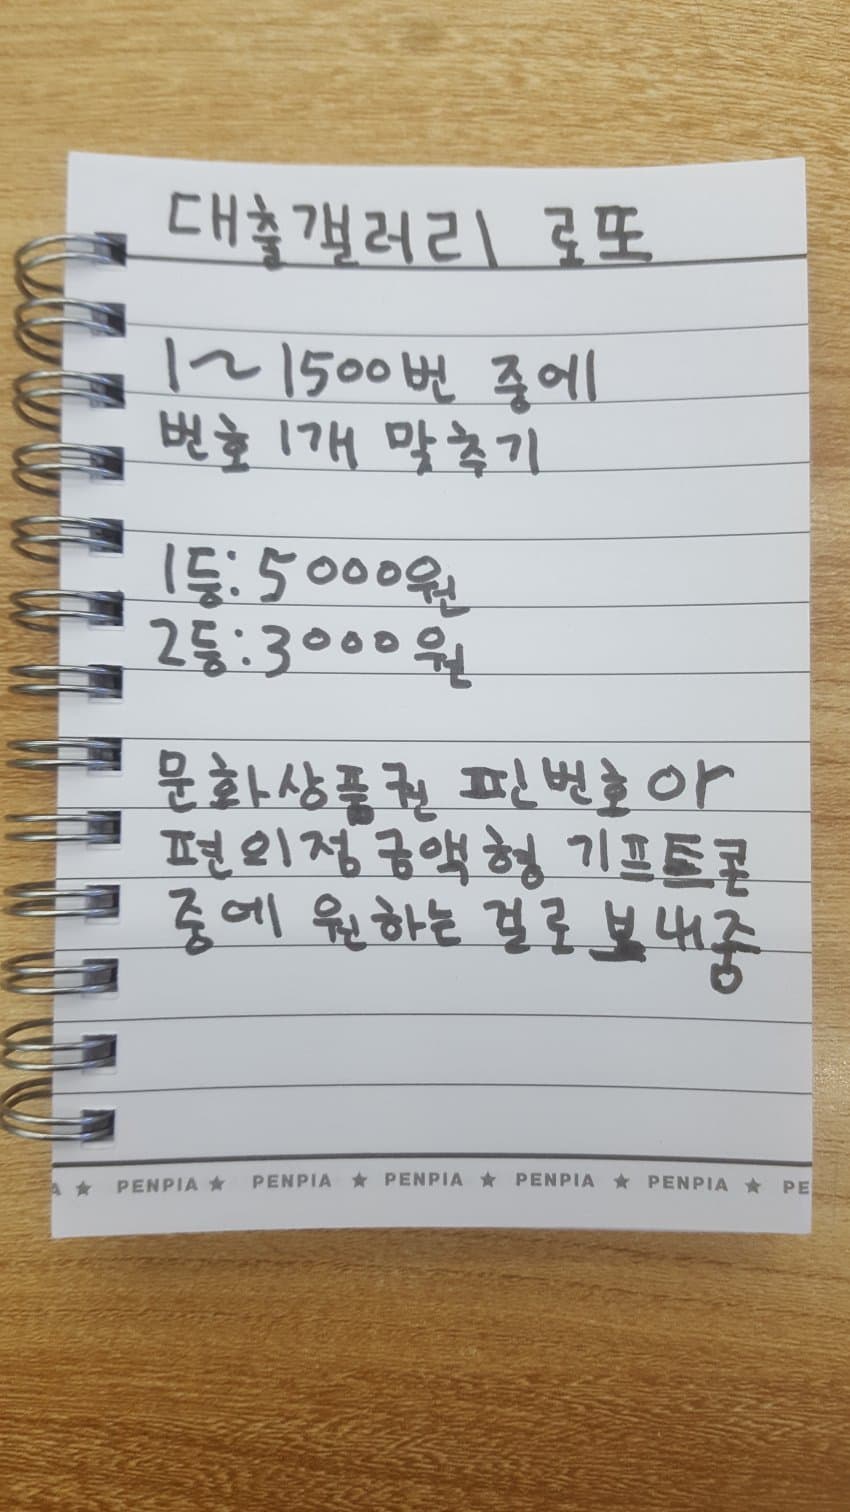 대출갤러리 로또
1~1500번 중에
번호 1개 맞추기
1등: 5000원
2등: 3000원
문화상품권 핀번호아
편의점 금액형 기프트콘
중에 원하는 걸로 보내중
A ★ PENPIA ★ PENPIA ★ PENPIA ★ PENPIA ★ PENPIA ★ PE